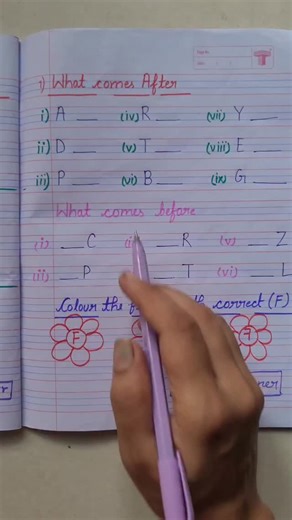 1) What comes After
i) A __ (iv) R __ (vii) Y __
ii) D __ (v) T __ (viii) E __
iii) P __ (vi) B __ (ix) G __
What comes before
(i) __ C __ R (v) __ Z
(ii) __ P __ T (vi) __ L
Colour the correct (F)
F